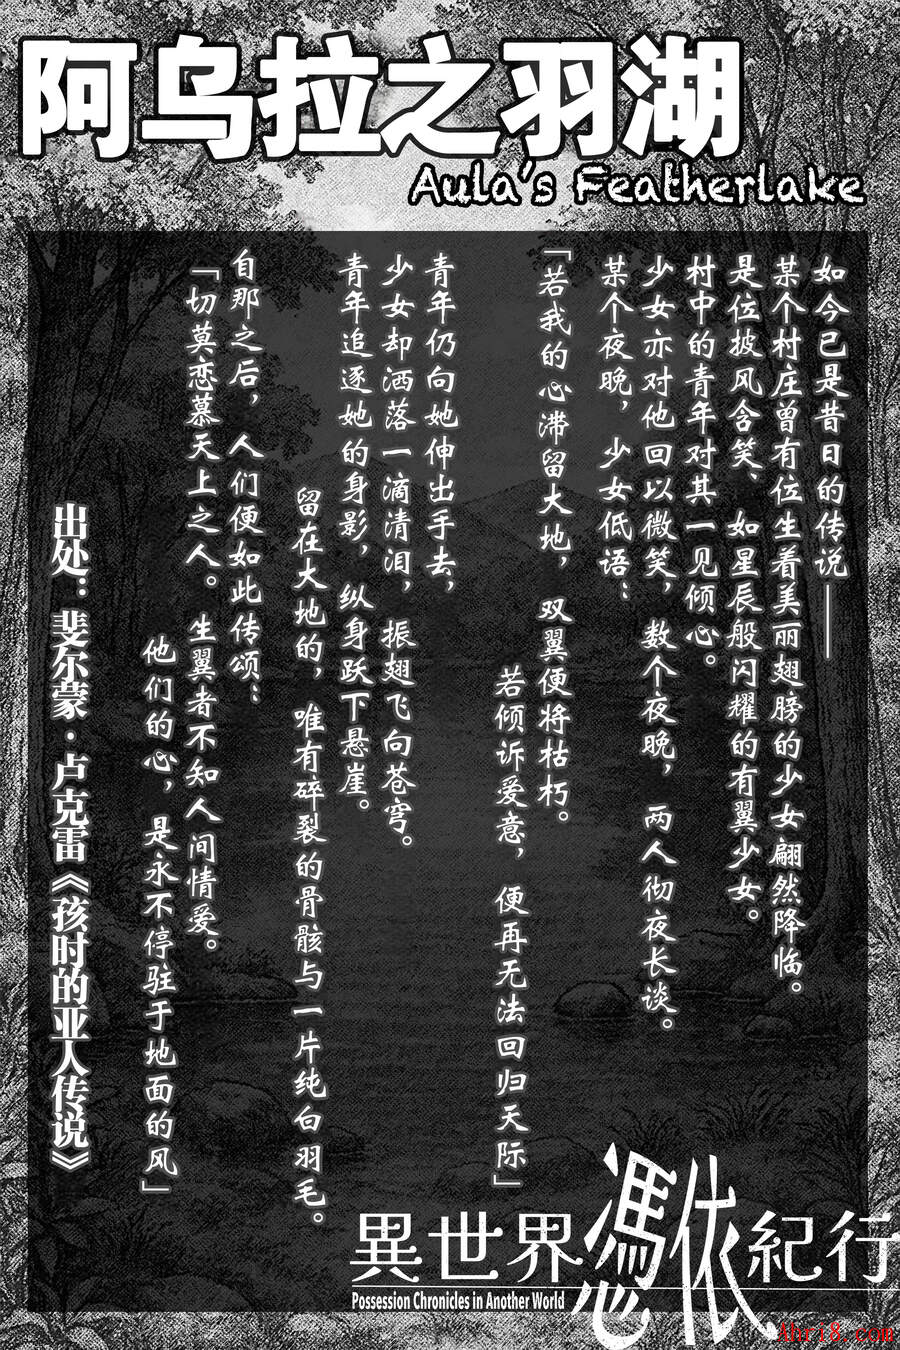 阿乌拉之羽湖
Aula's Featherlake
如今已是昔日的传说——
某个村庄曾有位生着美丽翅膀的少女翩然降临。
是位披风含笑、如星辰般闪耀的有翼少女。
村中的青年对其一见倾心。
少女亦对他回以微笑，数个夜晚，两人彻夜长谈。
某个夜晚，少女低语：
「若我的心滞留大地，双翼便将枯朽。
若倾诉爱意，便再无法回归天际」
青年仍向她伸出手去，
少女却洒落一滴清泪，振翅飞向苍穹。
青年追逐她的身影，纵身跃下悬崖。
留在大地的，唯有碎裂的骨骸与一片纯白羽毛。
自那之后，人们便如此传颂：
「切莫恋慕天上之人。生翼者不知人间情爱。
他们的心，是永不停驻于地面的风」
出处：斐尔蒙·卢克雷《孩时的亚人传说》
異世界憑依紀行
Possession Chronicles in Another World
Ahri8.com